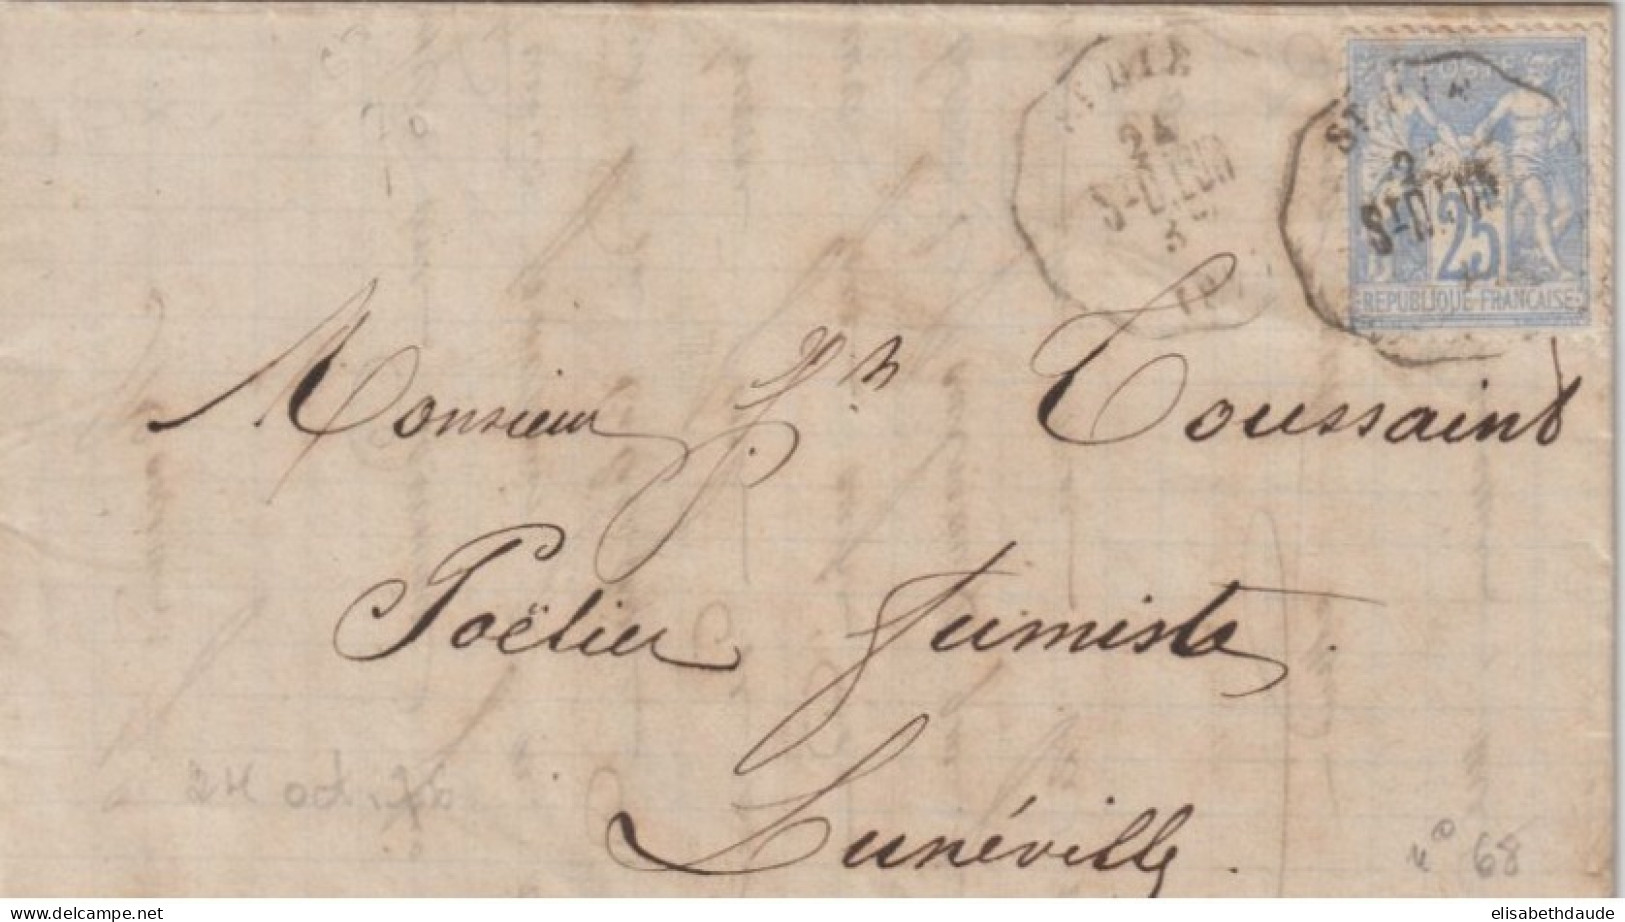 ST DIE
24
POSTE
ST DIE
25
REPUBLIQUE FRANCAISE
Monsieur Jh Toussaint
Poëlier fumiste.
Lunéville.
n° 68
www.delcampe.net
elisabethdaude